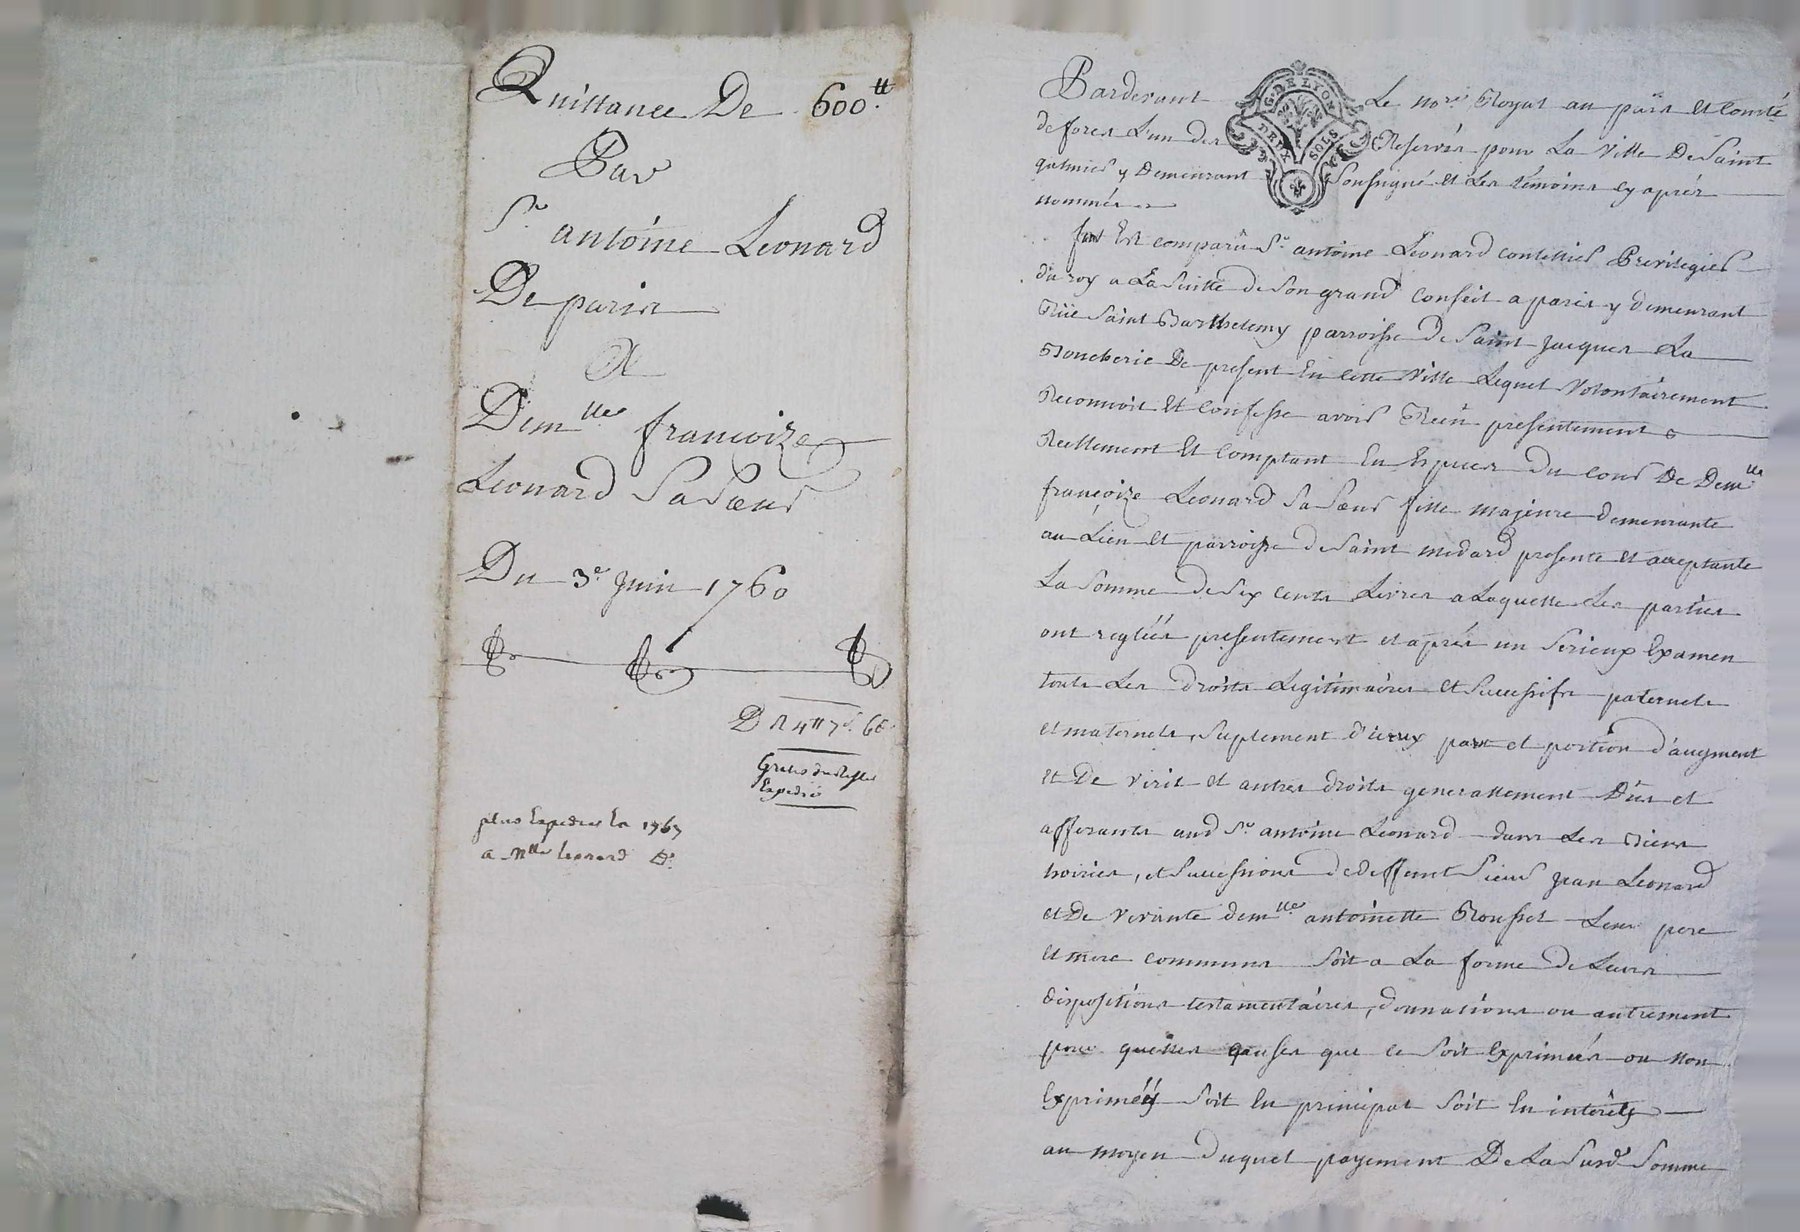 Quittance De 600.tt
Par
Sr antoine Leonard
De paris
A
Demlle françoize
Leonard Sa Sœur
Du 3e juin 1760
plus Expedier en 1767
a Mlle leonard
G. DE LYON
DEUX SOLS
Pardevant Le nore Royal au païs et Comté
de forez L'un des Reservés pour La Ville De Saint
galmier y Demeurant Soussigné et Les témoins cy aprés
nommés
fut Est comparû Sr antoine Leonard coutellier Privilegier
du roy a La Suitte de Son grand Conseil a paris y demeurant
Rüe Saint Barthelemy parroisse de Saint Jacques La
Boucherie De present En cette Ville Lequel Volontairement
Reconnoit Et Confesse avoir Reçu presentement
Reellement Et Comptant En Especes Du Cours De Demlle
françoize Leonard Sa Sœur fille majeure demeurante
au Lieu et parroisse de Saint medard presente et acceptante
La Somme de Six Cents Livres a Laquelle Les parties
ont reglées presentement et aprés un Serieux Examen
touts Les droits Legitimaires et Successifs paternels
et maternels, Suplement d'iceux part et portion d'augment
et De Viril et autres droits generallement Dûs et
afferants aud. Sr antoine Leonard dans Les Biens
hoiries, et Successions de deffunt Sieur Jean Leonard
et De Vivante demlle antoinette Rousset Leur pere
et mere communs Soit a La forme de Leurs
dispositions testamentaires, donnations ou autrement
pour quelles causes que ce Soit Exprimées ou non
Exprimées Soit En principal Soit En intérêts
au moyen Duquel payement De La Susd. Somme